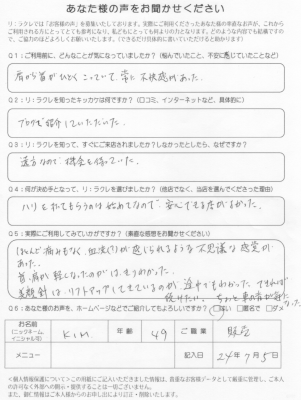 あなた様の声をお聞かせください
リ：ラクレでは「お客様の声」を募集いたしております。実際にご利用くださったあなた様の率直なお声が、これから
ご利用される方にとってとても参考になり、私どもにとっても何よりの力となります。どのような内容でも結構ですの
で、ご協力のほどよろしくお願いいたします。（できるだけ具体的に書いていただけると助かります）
Q1：ご利用前に、どんなことが気になっていましたか？（悩んでいたこと、不安に感じていたことなど）
肩から首がひどくこっていて、常に不快感があった。
Q2：リ：ラクレを知ったキッカケは何ですか？（口コミ、インターネットなど、具体的に）
ブログで紹介していただいた。
Q3：リ：ラクレを知って、すぐにご来店されましたか？しなかったとしたら、なぜですか？
遠方なので機会を待っていた。
Q4：何が決め手となって、リ：ラクレを選びましたか？（他店でなく、当店を選んでくださった理由）
ハリをたてもらうのは始めてなので、安心できる店がよかった。
Q5：実際にご利用してみていかがですか？（素直な感想をお聞かせください）
ほとんど痛みもなく、血流(?)が感じられるような不思議な感覚が
あった。
首、肩が軽くなったのがはっきりわかった。
美顔針は、リフトアップしてきているのが途中でもわかった。できれば
続けたい。
Q6：あなた様のお声を、ホームページなどでご紹介してもよろしいですか？ □はい □匿名で □ダメ
お名前
(ニックネーム、
イニシャル可)
K.I.M.
年齢
49
ご職業
販売
メニュー
記入日
24年7月5日
＜個人情報保護について＞この用紙にご記入いただきました情報は、貴重なお客様データとして厳重に管理し、ご本人
の許可なく外部への開示・提供することは一切ございません。
また、個人情報はご本人様からのお申し出により訂正・削除いたします。